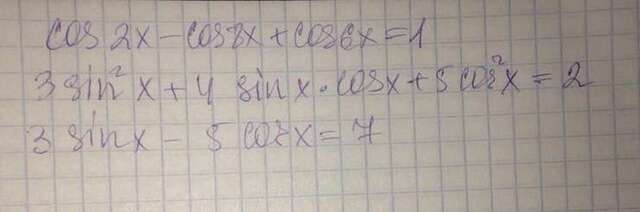 cos 2x - cos 8x + cos 6x = 1
3 sin² x + 4 sin x · cos x + 5 cos² x = 2
3 sin x - 5 cos x = 7